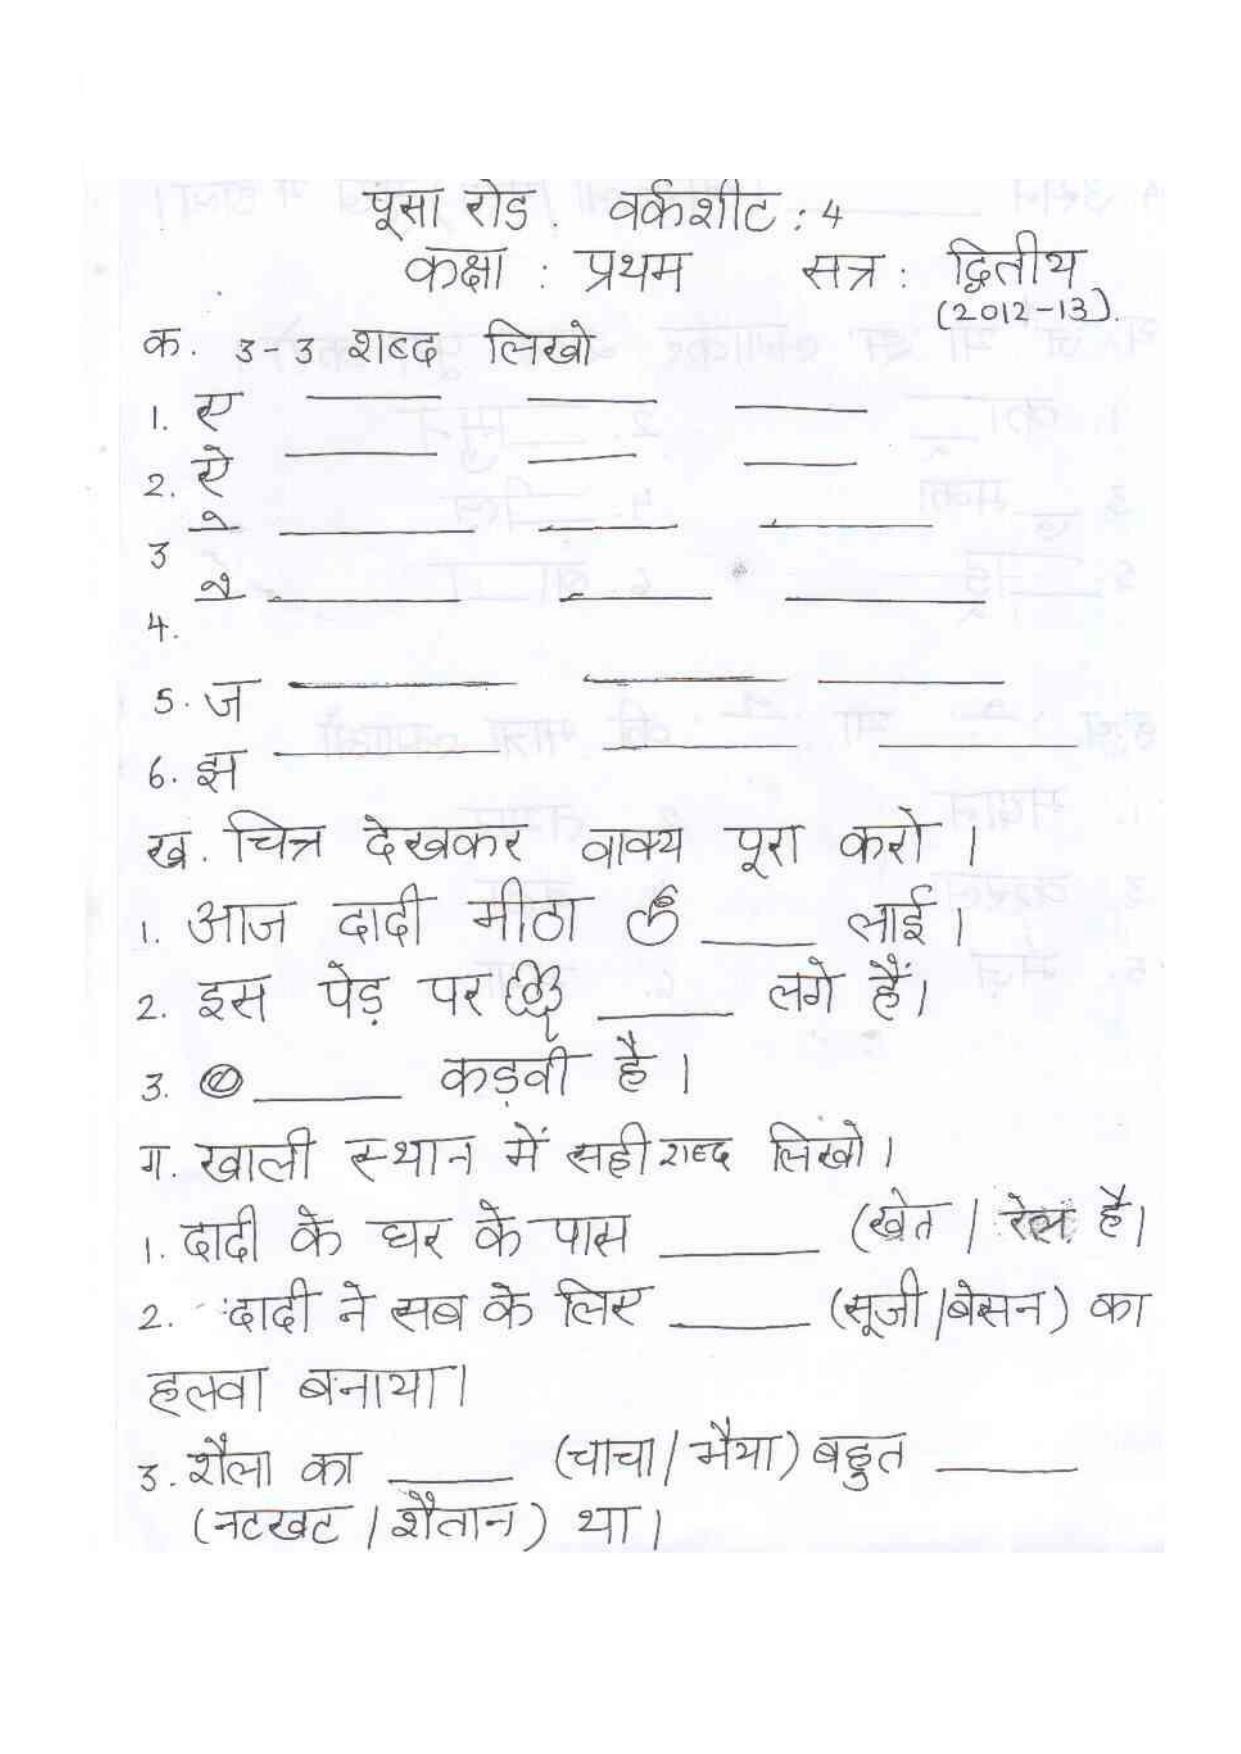 पूसा रोड. वर्कशीट : 4
कक्षा : प्रथम सत्र : द्वितीय
(2012-13).
क. 3-3 शब्द लिखो
1. ए ____ ____ ____
2. ऐ ____ ____ ____
3 े ____ ____ ____
4. ै ____ ____ ____
5. ज ____ ____ ____
6. झ ____ ____ ____
ख. चित्र देखकर वाक्य पूरा करो ।
1. आज दादी मीठा ____ लाई ।
2. इस पेड़ पर ____ लगे हैं।
3. ____ कड़वी है ।
ग. खाली स्थान में सही शब्द लिखो ।
1. दादी के घर के पास ____ (खेत / रेल है।
2. दादी ने सब के लिए ____ (सूजी / बेसन) का
हलवा बनाया।
3. शैला का ____ (चाचा / भैया) बहुत ____
(नटखट / शैतान) था ।